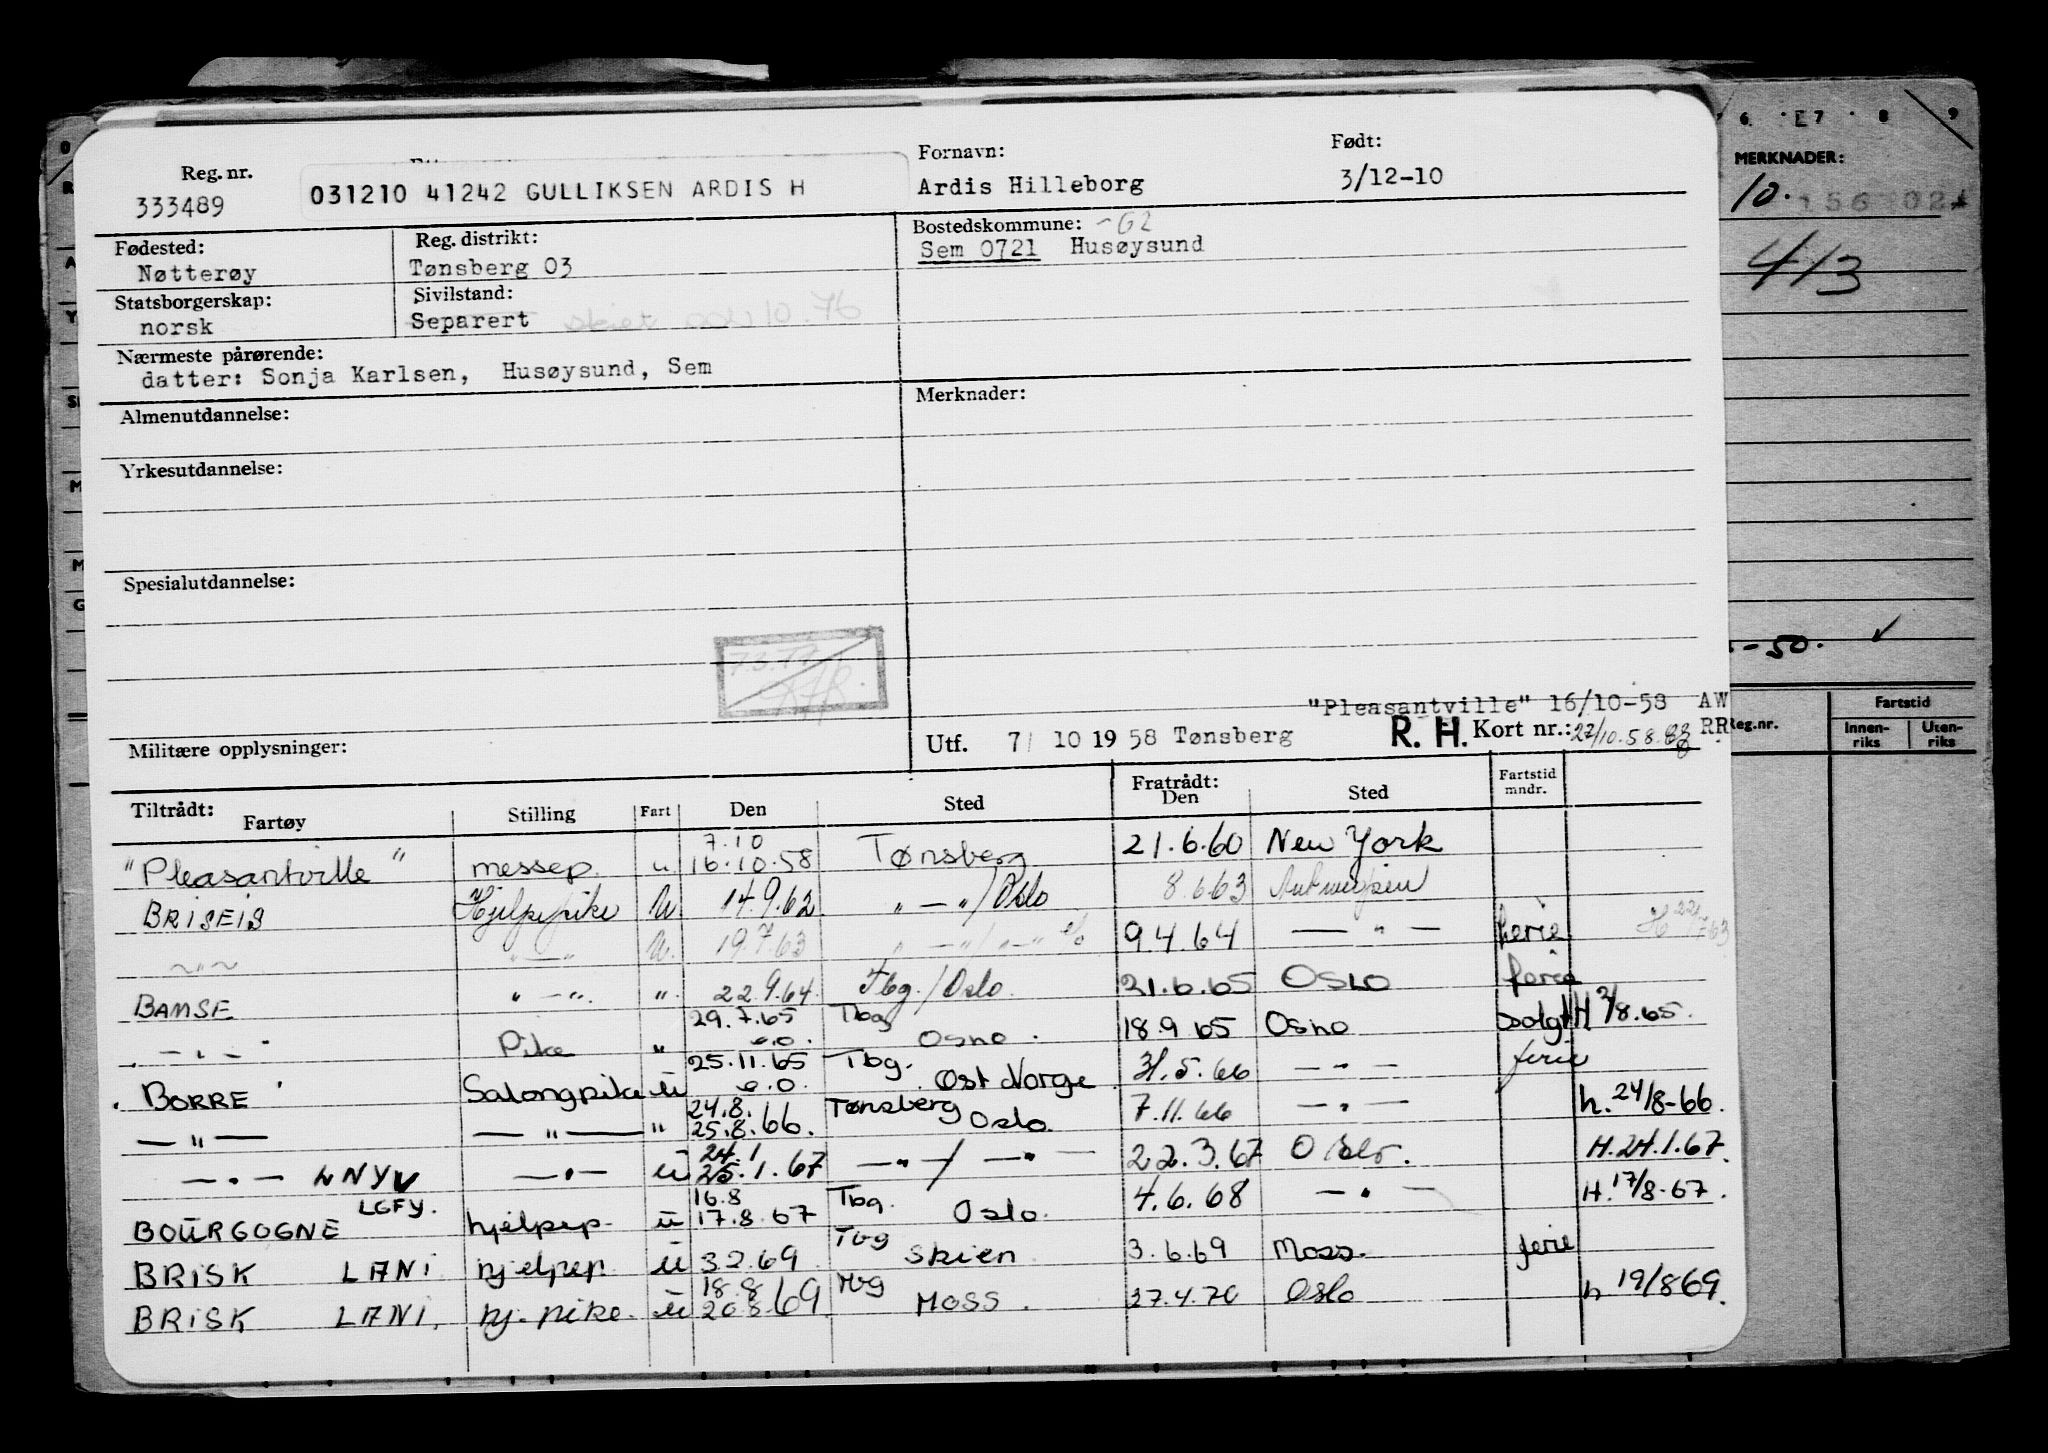 Reg. nr.
333489
031210 41242 GULLIKSEN ARDIS H
Fornavn:
Ardis Hilleborg
Født:
3/12-10
Fødested:
Nøtterøy
Reg. distrikt:
Tønsberg 03
Bostedskommune: -62
Sem 0721 Husøysund
Statsborgerskap:
norsk
Sivilstand:
Separert
Nærmeste pårørende:
datter: Sonja Karlsen, Husøysund, Sem
Almenutdannelse:
Merknader:
Yrkesutdannelse:
Spesialutdannelse:
Militære opplysninger:
"Pleasantville" 16/10-58 AW
Utf. 7/ 10 1958 Tønsberg R. H. Kort nr.: 27/10.58 RR
Tiltrådt:
Fartøy Stilling Fart Den Sted Fratrådt: Den Sted Fartstid mndr.
"Pleasantville" messep. u. 7.10 16.10.58 Tønsberg 21.6.60 New York
BRISEIS Hjelpepike U 14.9.62 " — " / Oslo 8.6.63 Antwerpen
~ " ~ " — " U. 19.7.63 " — " / " — " 9.4.64 — " — ferie
BAMSE " — ". ". 22.9.64 Tbg./Oslo. 21.6.65 OSLO ferie
— " — Pike " 29.7.65 Tbg Oslo. 18.9.65 Oslo solgt H 2/8.65.
BORRE Salongpike ü 25.11.65 o.o. Tbg. Øst Norge 31.5.66 — " — ferie
— " — — " — " 24.8. 25.8.66. Tønsberg Oslo. 7.11.66 — " — h. 24/8-66.
— " — LNYV — " — ü 24.1 25.1.67 — " — / — " — 22.3.67 Oslo. H. 24.1.67.
BOURGOGNE LGFY. hjelpep. ü 16.8 17.8.67 Tbg. Oslo. 4.6.68 — " — H. 17/8-67.
BRISK LANI hjelpep. ü 3.2.69 Tbg Skien 3.6.69 Moss. ferie
BRISK LANI. hj. pike. ü 18.8 20.8.69 Tbg Moss. 27.4.70 Oslo h 19/869.
6 7 8 9
MERKNADER:
10.
4/3
-50. ✓
Reg.nr.
Fartstid
Innen-riks
Uten-riks